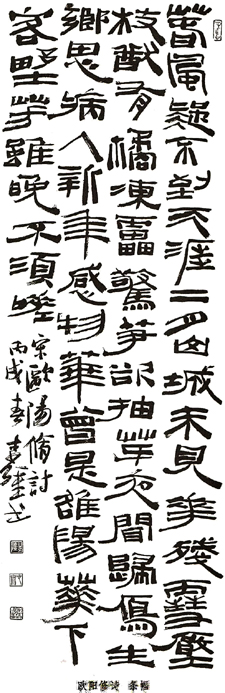 萅風疑不到天涯二月山城未見華殘雪壓
枝猷有橘凍靁驚笋欲抽芽夜聞歸鴈生
鄉思病入新年感物華曾是雒陽華下
客野芳雖晚不須嗟
宋歐陽脩詩
丙戌春
欧阳修诗 条幅